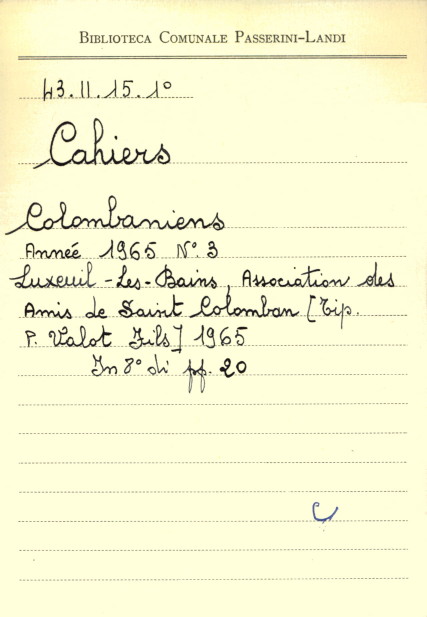 BIBLIOTECA COMUNALE PASSERINI-LANDI
43.II.15.1°
Cahiers
Colombaniens
Anneé 1965 N°. 3
Luxeuil-Les-Bains, Association des
Amis de Saint Colomban [Tip.
P. Valot Fils] 1965
In 8° di pp. 20
C